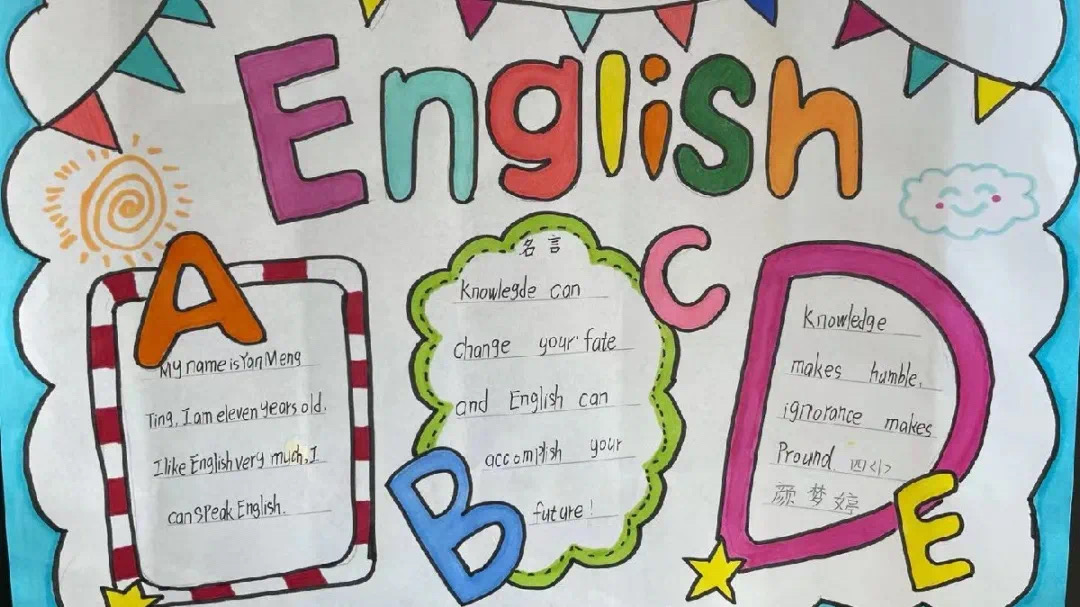 English
A
My name is Yan Meng
Ting, I am eleven years old.
I like English very much, I
can speak English.
B
名言
Knowlegde can
change your fate
and English can
accomplish your
future!
C
D
Knowledge
makes humble,
ignorance makes
Pround 四<1>
颜梦婷
E